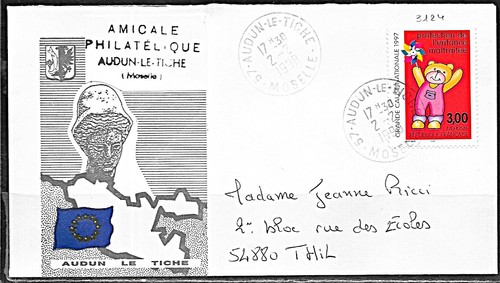 3124
AMICALE
PHILATÉLIQUE
AUDUN-LE-TICHE
(Moselle)
57-AUDUN-LE-TICHE
17 H30
2-2
1998
MOSELLE
57-AUDUN-LE-TICHE
17 H30
2-2
MOSELLE
GRANDE CAUSE NATIONALE 1997
protection de
l'enfance
maltraitée
3,00
Madame Jeanne Ricci
2e bloc rue des Ecoles
54880 THIL
AUDUN LE TICHE